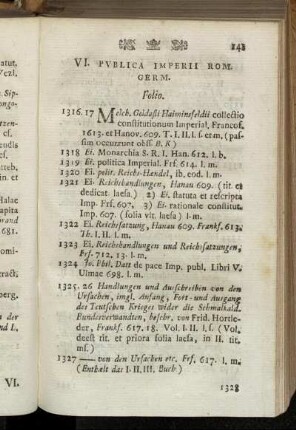 143
VI. PVBLICA IMPERII ROM.
GERM.
Folio.
1316. 17 Melch. Goldasti Haiminsfeldii collectio
constitutionum Imperial. Francof.
1613. et Hanov. 609. T. I. II. l. s. er. m. (pas-
sim occurrunt obss. B. K)
1318 Ei. Monarchia S. R. I. Han. 612. l. b.
1319 Ei. politica Imperial. Frf. 614. l. m.
1320 Ei. polit. Reichs-Handel, ib. eod. l. m.
1321 Ei. Reichshandlungen, Hanau 609. (tit et
dedicat. laesa.) 2) Ei. statuta et rescripta
Imp. Frf. 607. 3) Ei. rationale constitut.
Imp. 607. (folia vlt. laesa) l. m.
1322 Ei. Reichssatzung, Hanau 609. Frankf. 613.
Th. I. II. l. m.
1323 Ei. Reichshandlungen und Reichssatzungen,
Frf. 712. 13. l. m.
1324 Jo. Phil. Datt de pace Imp. publ. Libri V.
Ulmae 698. l. m.
1325. 26 Handlungen und Ausschreiben von den
Ursachen, imgl. Anfang, Fort- und Ausgang
des Teutschen Krieges wider die Schmalkald.
Bundsverwandten, beschr. von Frid. Hortle-
der, Frankf. 617. 18. Vol. I. II. l. s. (Vol.
deest tit. et priora folia laesa, in II. tit.
ms.)
1327 — von den Ursachen etc. Frf. 617. l. m.
(Enthält das I. II. III. Buch)
1328
VI.